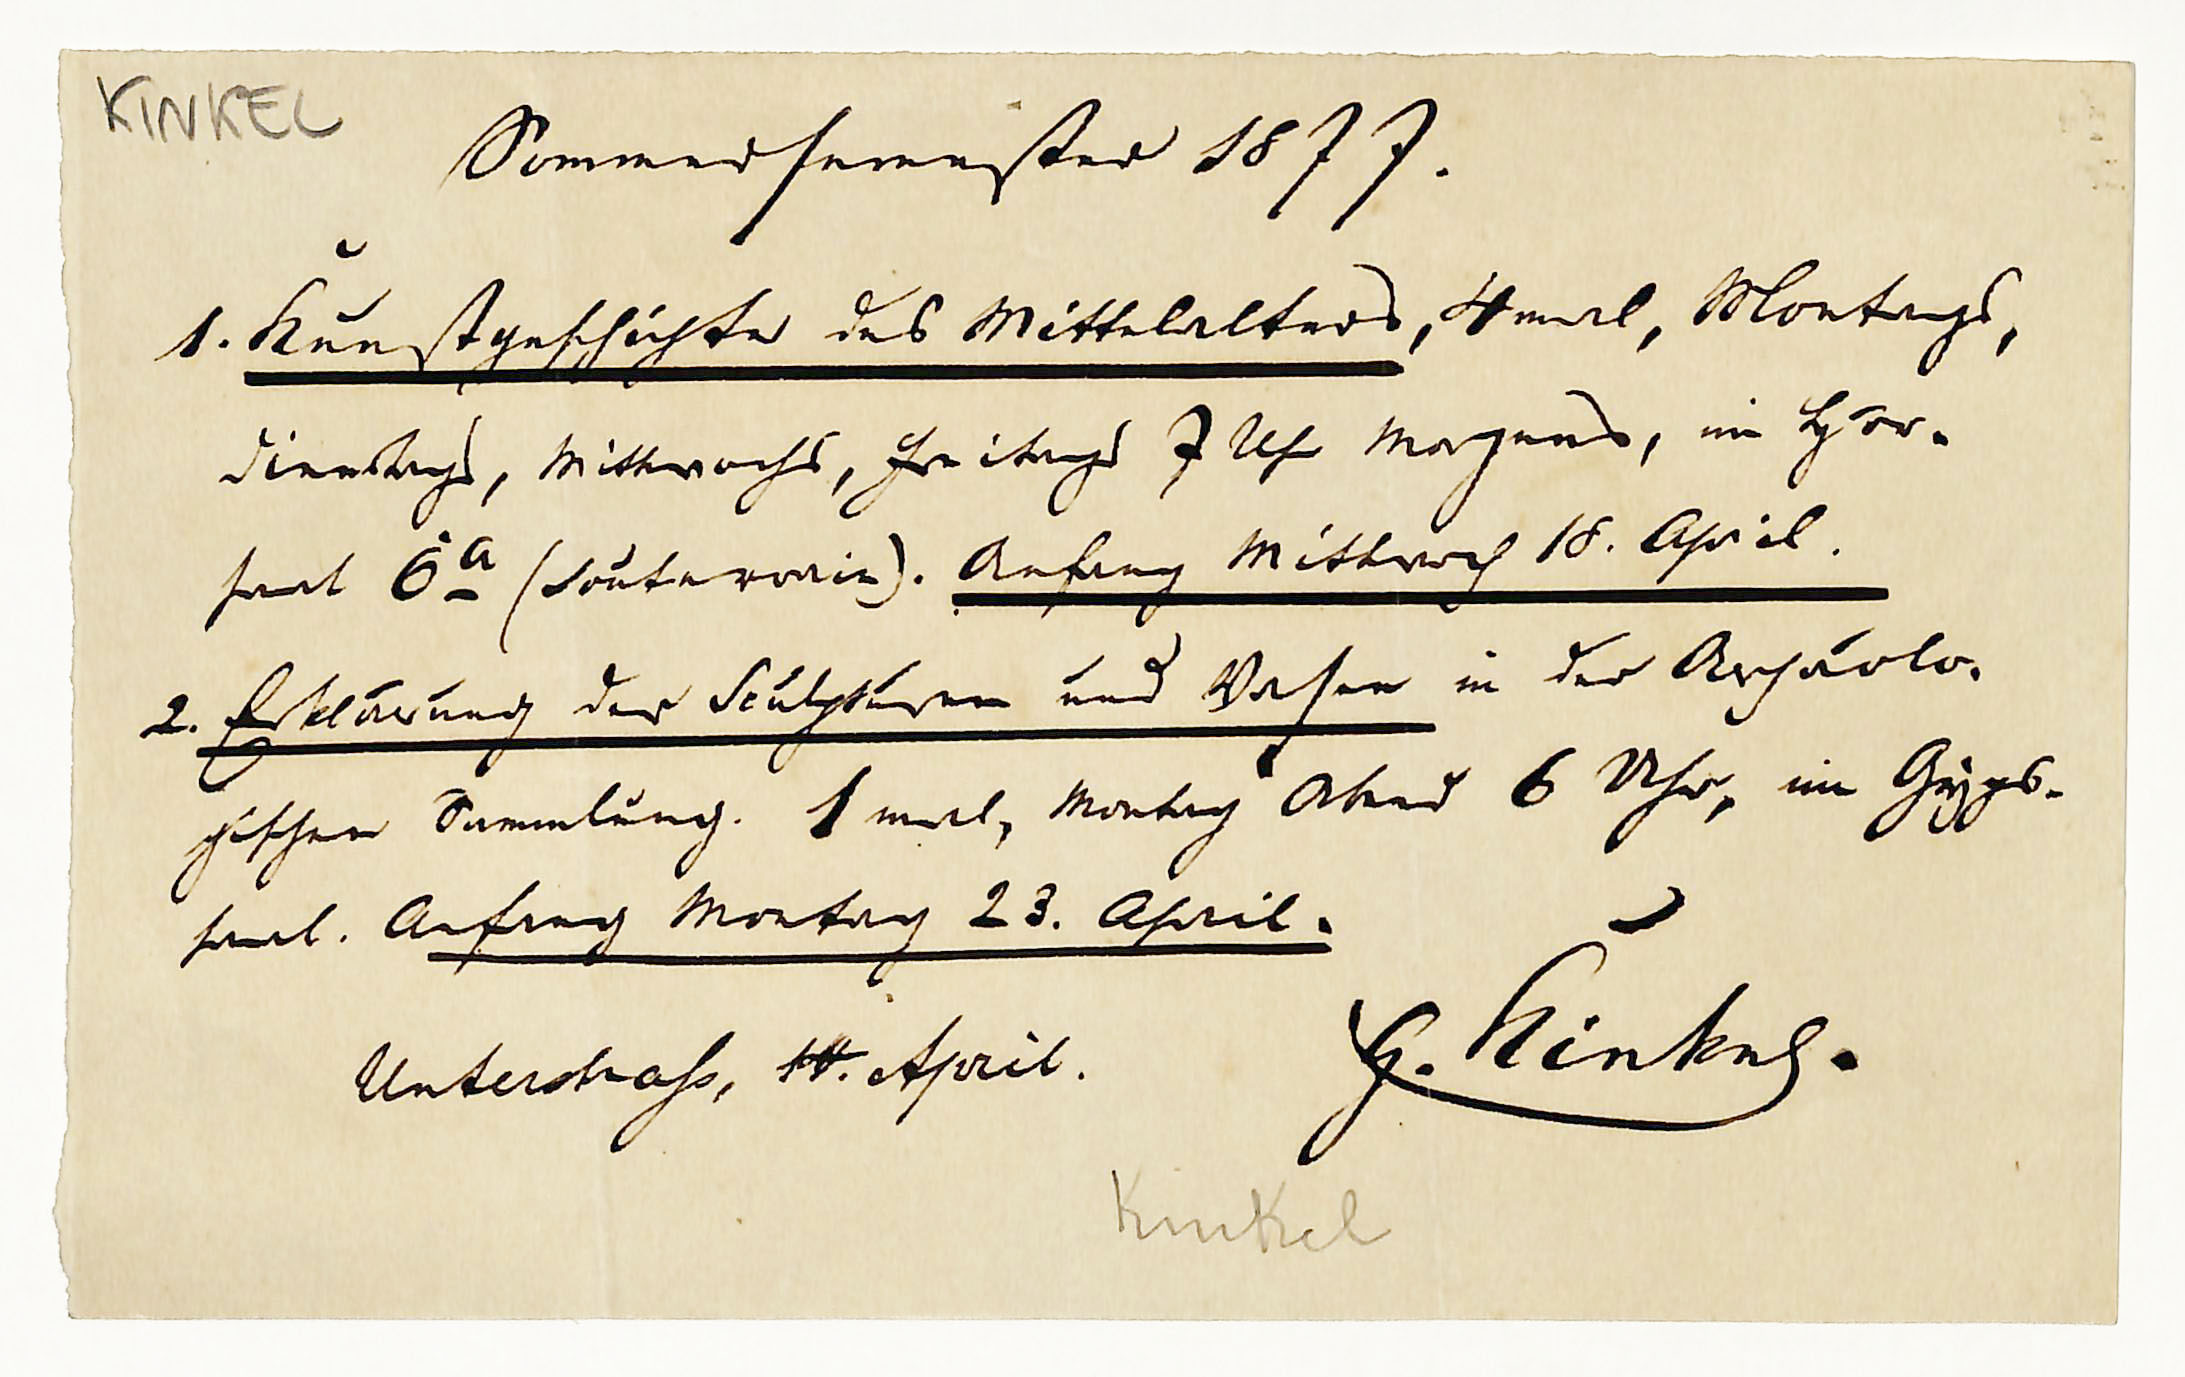 KINKEL
Sommersemester 1877.
1. Kunstgeschichte des Mittelalters, 4 mal, Montags,
Dienstags, Mittwochs, Freitags 7 Uhr Morgens, im Hör-
saal 6a (Souterrain). Anfang Mittwoch 18. April.
2. Erklärung der Sculpturen und Vasen in der Archäolo-
gischen Sammlung. 1 mal, Montag Abend 6 Uhr, im Gyps-
saal. Anfang Montag 23. April.
Unterstrass, 14. April.
G. Kinkel.
Kinkel